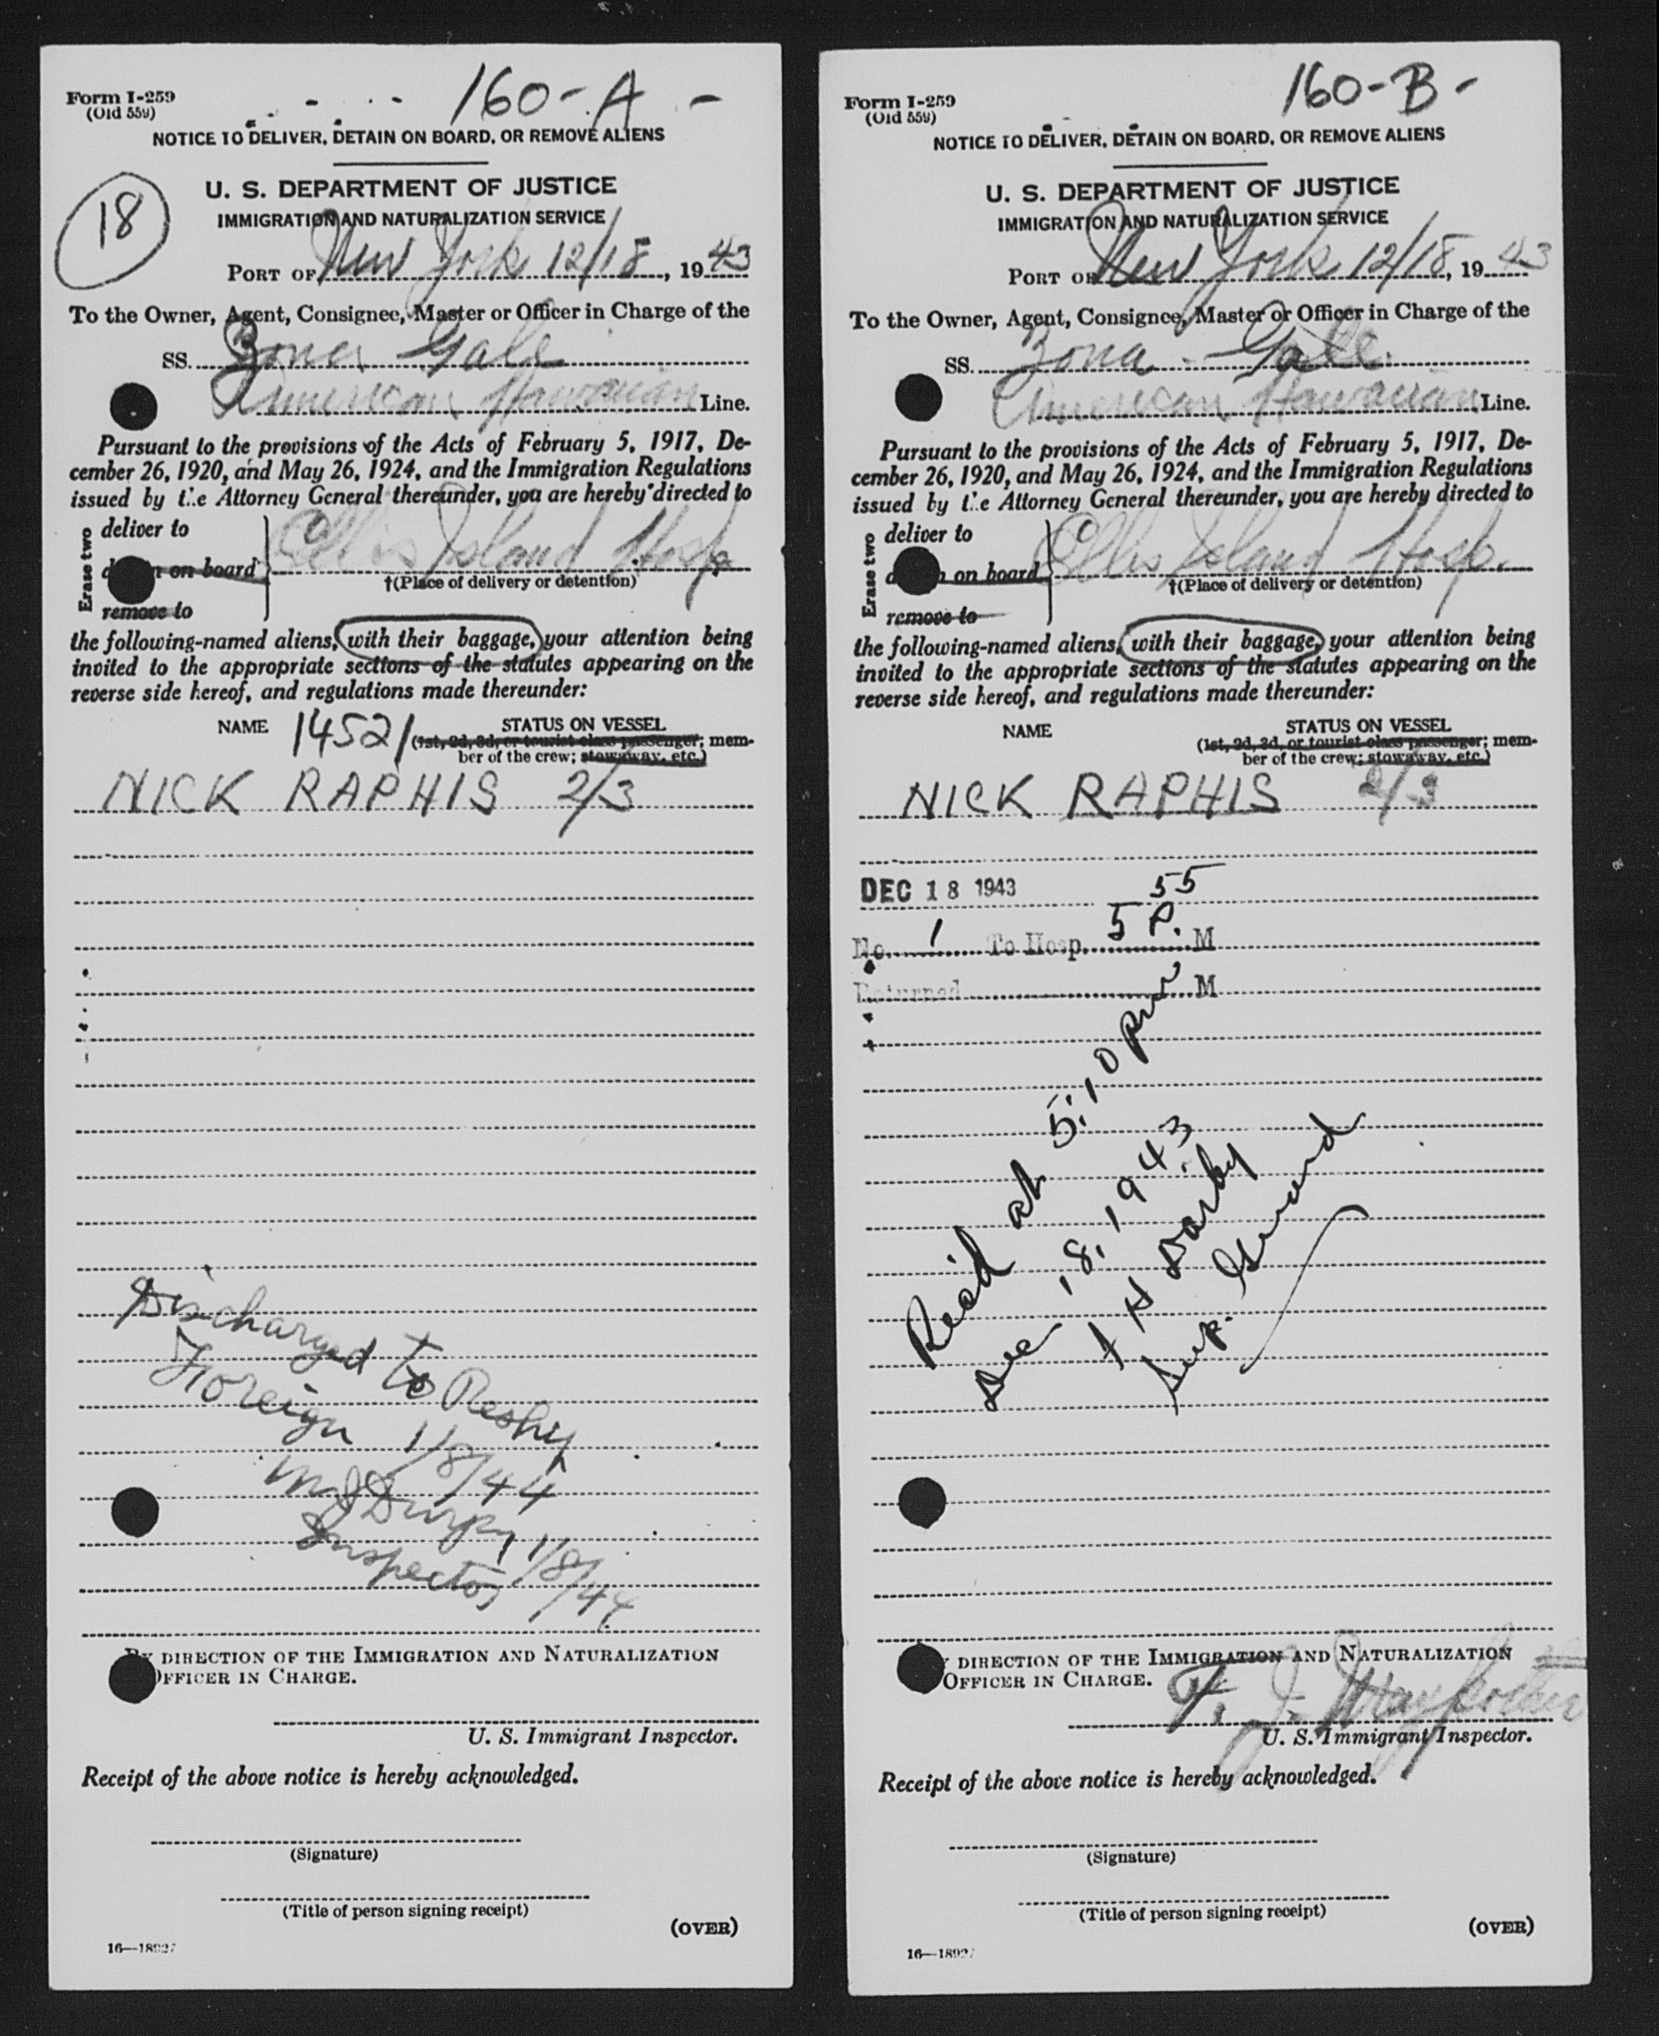 160-A-
Form I-259
(Old 559)
NOTICE TO DELIVER, DETAIN ON BOARD, OR REMOVE ALIENS
18
U. S. DEPARTMENT OF JUSTICE
IMMIGRATION AND NATURALIZATION SERVICE
PORT OF New York 12/18, 1943
To the Owner, Agent, Consignee, Master or Officer in Charge of the
SS. Zona Gale
American Hawaiian Line.
Pursuant to the provisions of the Acts of February 5, 1917, De-
cember 26, 1920, and May 26, 1924, and the Immigration Regulations
issued by the Attorney General thereunder, you are hereby directed to
Erase two
deliver to
on board
remove to
Ellis Island Hosp
†(Place of delivery or detention)
the following-named aliens, with their baggage, your attention being
invited to the appropriate sections of the statutes appearing on the
reverse side hereof, and regulations made thereunder:
NAME 14521 STATUS ON VESSEL
(1st, 2d, 3d, or tourist class passenger; mem-
ber of the crew; stowaway, etc.)
NICK RAPHIS 2/3
Discharged to Reship
Foreign 1/8/44
Inspector 1/8/44
BY DIRECTION OF THE IMMIGRATION AND NATURALIZATION
OFFICER IN CHARGE.
U. S. Immigrant Inspector.
Receipt of the above notice is hereby acknowledged.
(Signature)
(Title of person signing receipt)
(OVER)
16—18927
160-B-
Form I-259
(Old 559)
NOTICE TO DELIVER, DETAIN ON BOARD, OR REMOVE ALIENS
U. S. DEPARTMENT OF JUSTICE
IMMIGRATION AND NATURALIZATION SERVICE
PORT OF New York 12/18, 1943
To the Owner, Agent, Consignee, Master or Officer in Charge of the
SS. Zona Gale
American Hawaiian Line.
Pursuant to the provisions of the Acts of February 5, 1917, De-
cember 26, 1920, and May 26, 1924, and the Immigration Regulations
issued by the Attorney General thereunder, you are hereby directed to
Erase two
deliver to
on board
remove to
Ellis Island Hosp.
†(Place of delivery or detention)
the following-named aliens, with their baggage, your attention being
invited to the appropriate sections of the statutes appearing on the
reverse side hereof, and regulations made thereunder:
NAME STATUS ON VESSEL
(1st, 2d, 3d, or tourist class passenger; mem-
ber of the crew; stowaway, etc.)
NICK RAPHIS 2/3
DEC 18 1943
No. 1 To Hosp. 5 55 P. M
Returned M
Rec'd at 5:10 pm
Dec 18, 1943
Darby
Sup. Guard
BY DIRECTION OF THE IMMIGRATION AND NATURALIZATION
OFFICER IN CHARGE.
U. S. Immigrant Inspector.
Receipt of the above notice is hereby acknowledged.
(Signature)
(Title of person signing receipt)
(OVER)
16—18927